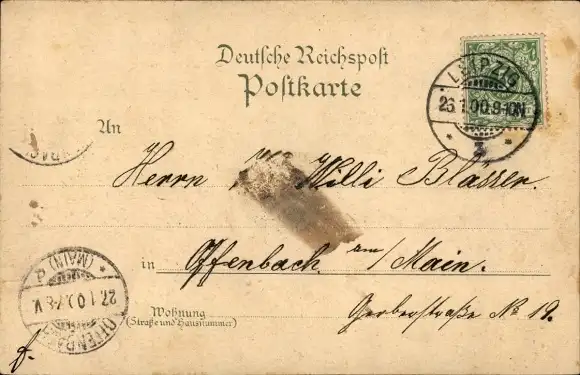 Deutsche Reichspost
Postkarte
LEIPZIG
26.1.00.9-10N
3
An
Herrn Willi Blässer.
in Offenbach am/Main.
Wohnung
(Straße und Hausnummer)
Gerberstraße No 19.
OFFENBACH
(MAIN)
27.1.00.7-8V